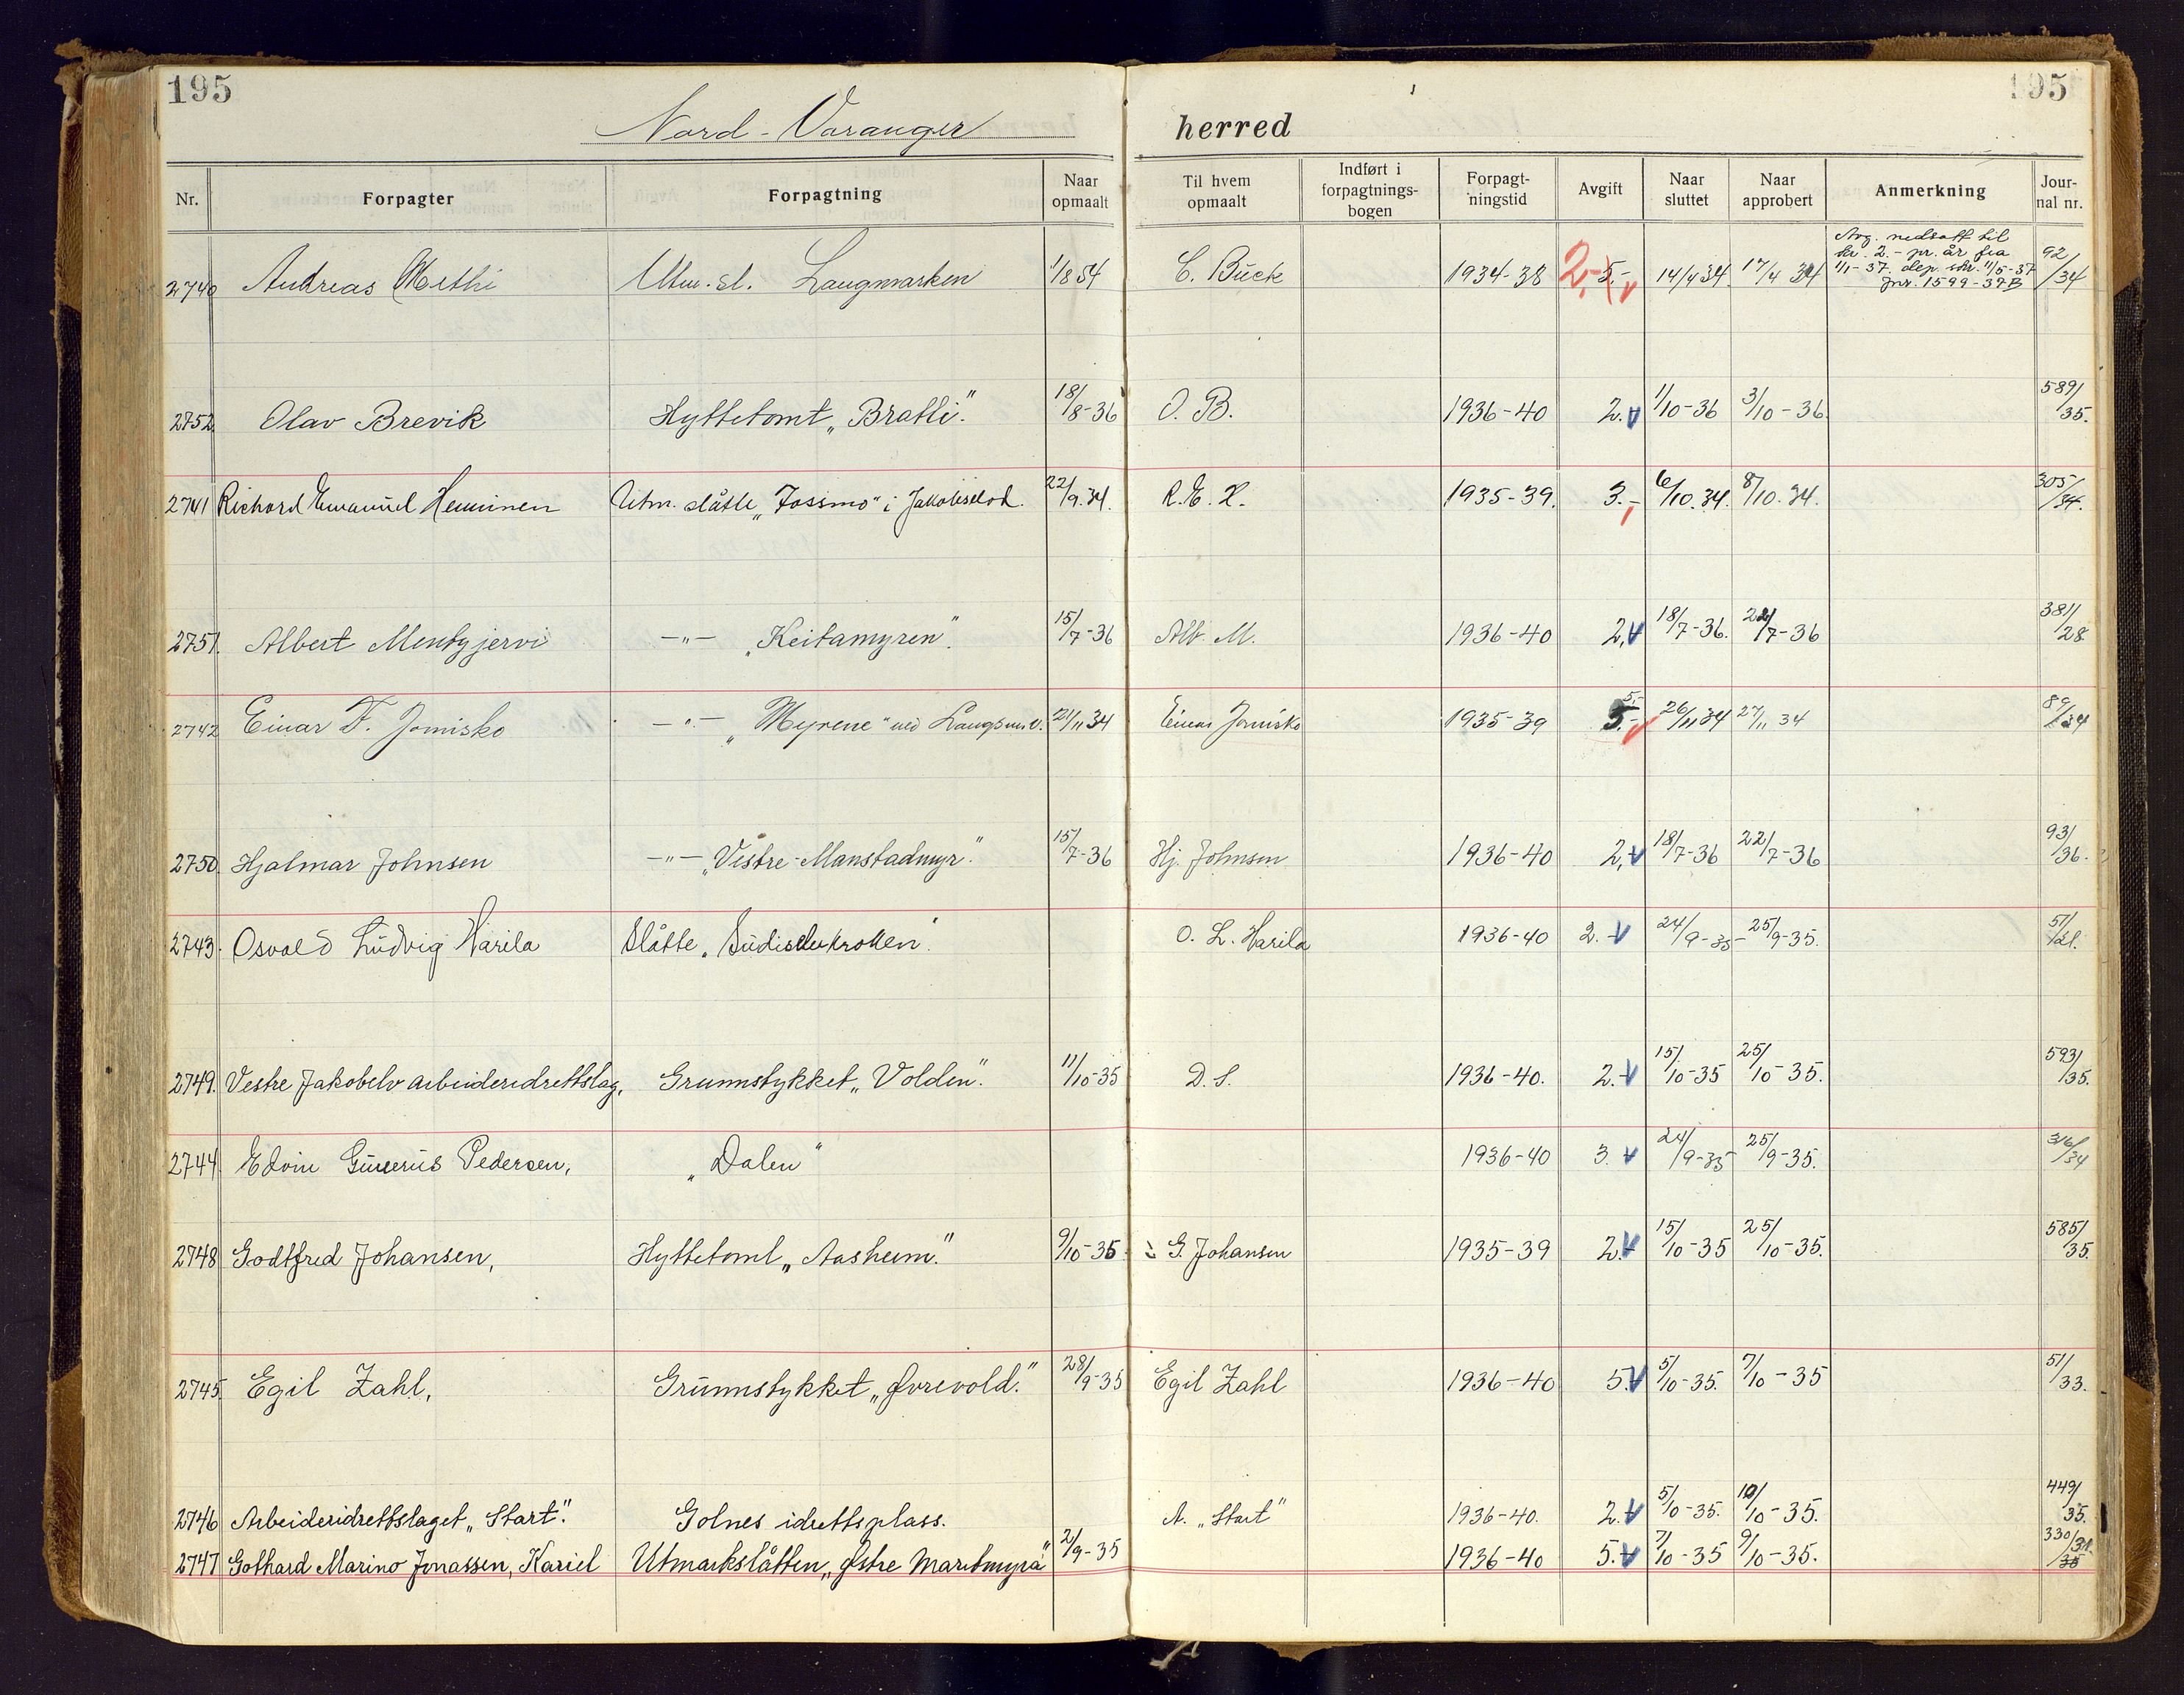 195
195
Nord-Varanger herred
Nr. Forpagter Forpagtning Naar opmaalt Til hvem opmaalt Indført i forpagtnings-bogen Forpagt-ningstid Avgift Naar sluttet Naar approbert Anmerkning Jour-nal nr.
2740 Andreas Methi Utm. sl. Langmarken 1/8 54 C. Buck 1934-38 2,- 5,- 14/4 34 17/4 34 Avg. nedsatt til kr. 2.- pr. år fra 1/1-37. dep. skr. 11/5-37 Jnr. 1599-37B 92/34
2752 Olav Brevik Hyttetomt „Bratli“. 18/8-36 O. B. 1936-40 2. 1/10-36 3/10-36. 589/35.
2741 Richard Emanuel Henninen Utm. slåtte „Fossmo“ i Jakobselvd. 22/9.34. R.E.H. 1935-39. 3.- 6/10.34. 8/10.34. 305/34.
2751. Albert Mentyjervi -"- „Keitamyren“. 15/7-36 Alb. M. 1936-40 2, 18/7-36. 22/7-36 381/28
2742 Einar F. Jomisko -"- „Myrene“ ved Langsm.v. 21/11 34 Einar Jomisko 1935-39 5.- 26/11 34 27/11 34 89/34
2750. Hjalmar Johnsen -"- „Vestre-Manstadmyr“. 15/7-36 Hj. Johnsen 1936-40 2, 18/7-36 22/7-36 93/36.
2743. Osvald Ludvig Harila Slåtte „ O. L. Harila 1936-40 2.- 24/9-35- 25/9-35. 51/21.
2749. Vestre Jakobelv arbeideridrettslag, Grunnstykket „Volden“. 11/10-35 D. S. 1936-40. 2.- 15/10-35 25/10-35. 593/35.
2744 Edvin Gunerius Pedersen, „Dalen“ 1936-40 3. 24/9-35 25/9-35. 316/34
2748 Godtfred Johansen, Hyttetomt „Aasheim“. 9/10-35. G. Johansen 1935-39 2. 15/10-35 25/10-35. 585/35.
2745. Egil Zahl, Grunnstykket „Øvrevold.“ 28/9-35 Egil Zahl 1936-40 5. 5/10-35. 7/10-35 51/33.
2746 Arbeideridrettslaget „Start“. Golnes idrettsplass. A. „Start“ 1936-40. 2. 5/10-35. 10/10-35. 449/35.
2747 Gothard Marino Jonassen, Kariel Utmarkslåtten „Østre Maritmyra“ 2/9-35 1936-40 5.- 7/10-35 9/10-35. 330/31. /35